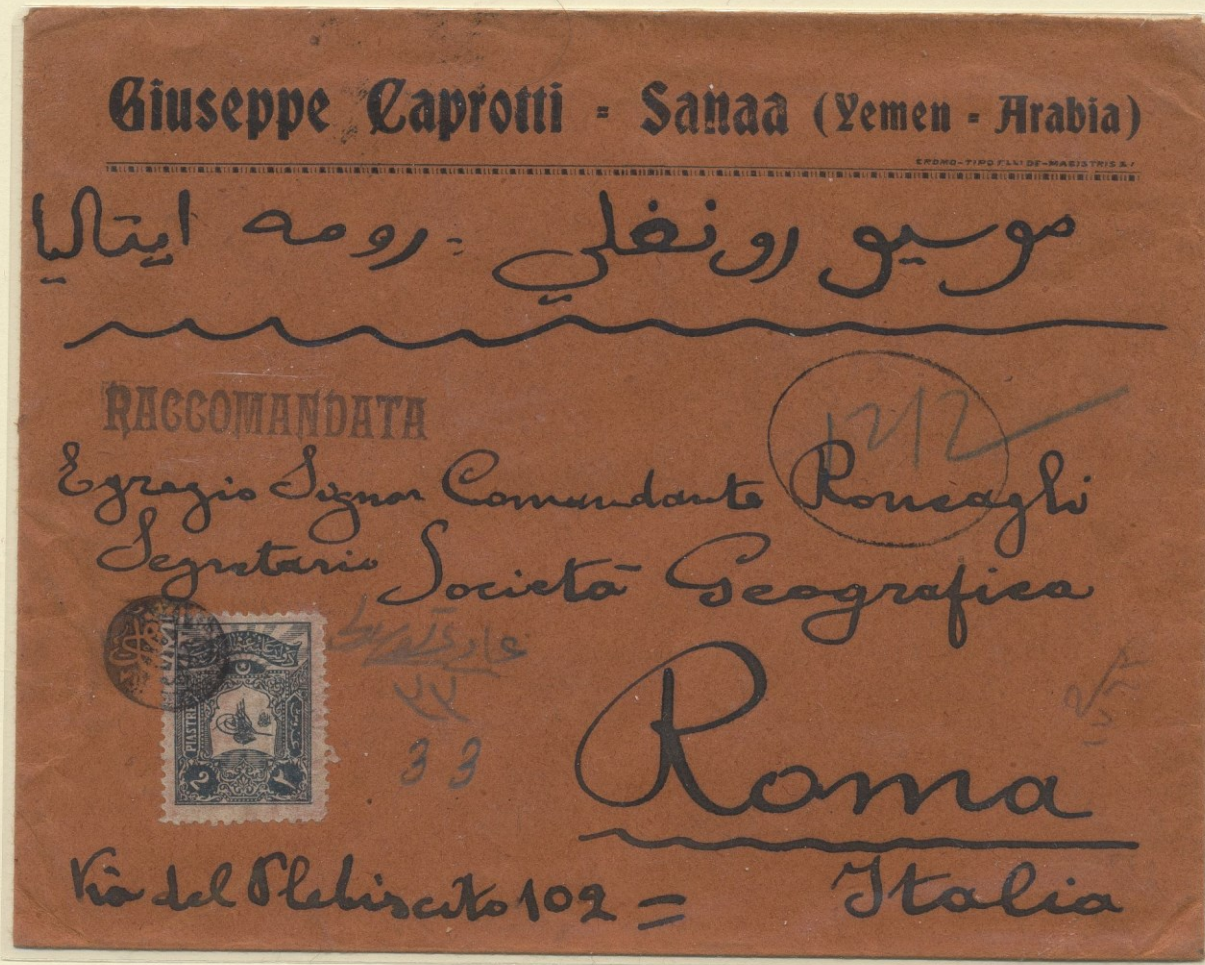 Giuseppe Caprotti = Sanaa (Yemen - Arabia)
CROMO-TIPO F.LLI DE-MAGISTRIS & C
موسيو رونغلي = رومه ايتاليا
RACCOMANDATA
1212
Egregio Signor Comandante Roncagli
Segretario Società Geografica
PIASTRE
2 ٢
33
Roma
Via del Plebiscito 102 = Italia